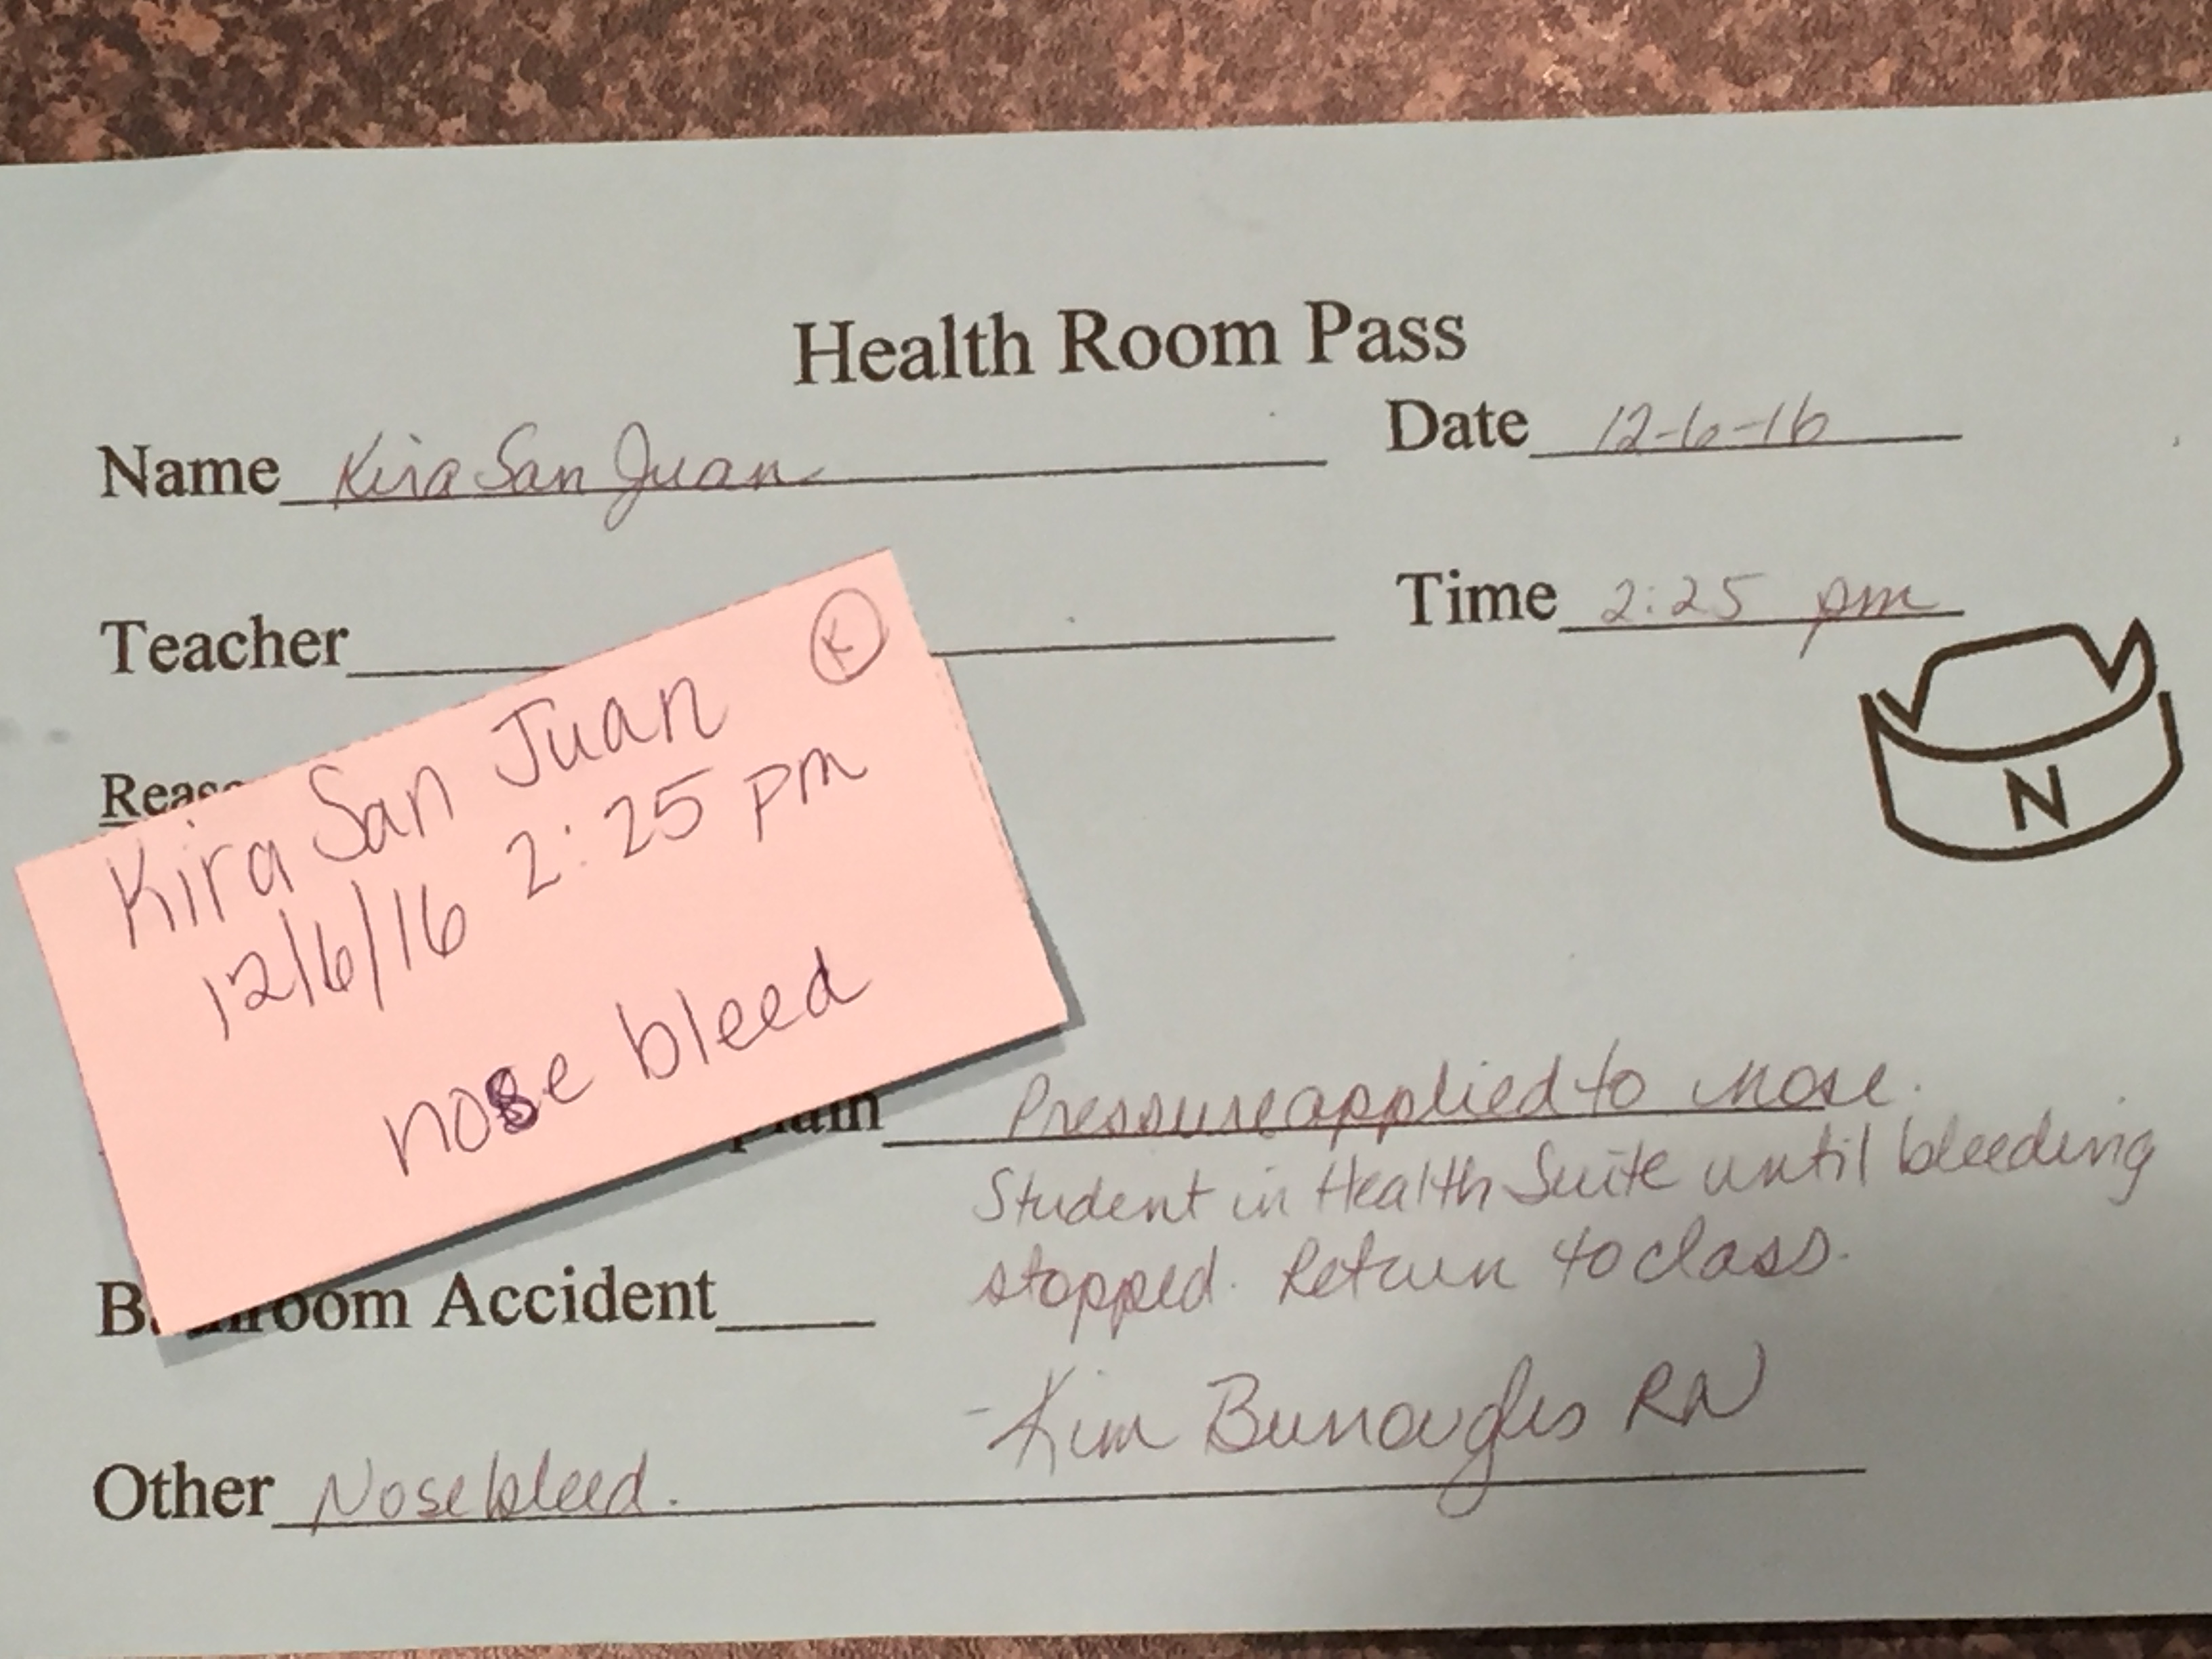 Health Room Pass
Name Kira San Juan Date 12-6-16
Teacher Time 2:25 pm
N
K
Kira San Juan
12/6/16 2:25 pm
nose bleed
Pressure applied to nose.
Student in Health Suite until bleeding
stopped. Return to class.
Accident
-Kim Burroughs RN
Other Nosebleed.